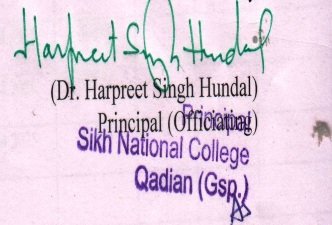 Harpreet Singh Hundal
(Dr. Harpreet Singh Hundal)
Principal (Officiating)
Principal
Sikh National College
Qadian (Gsp.)